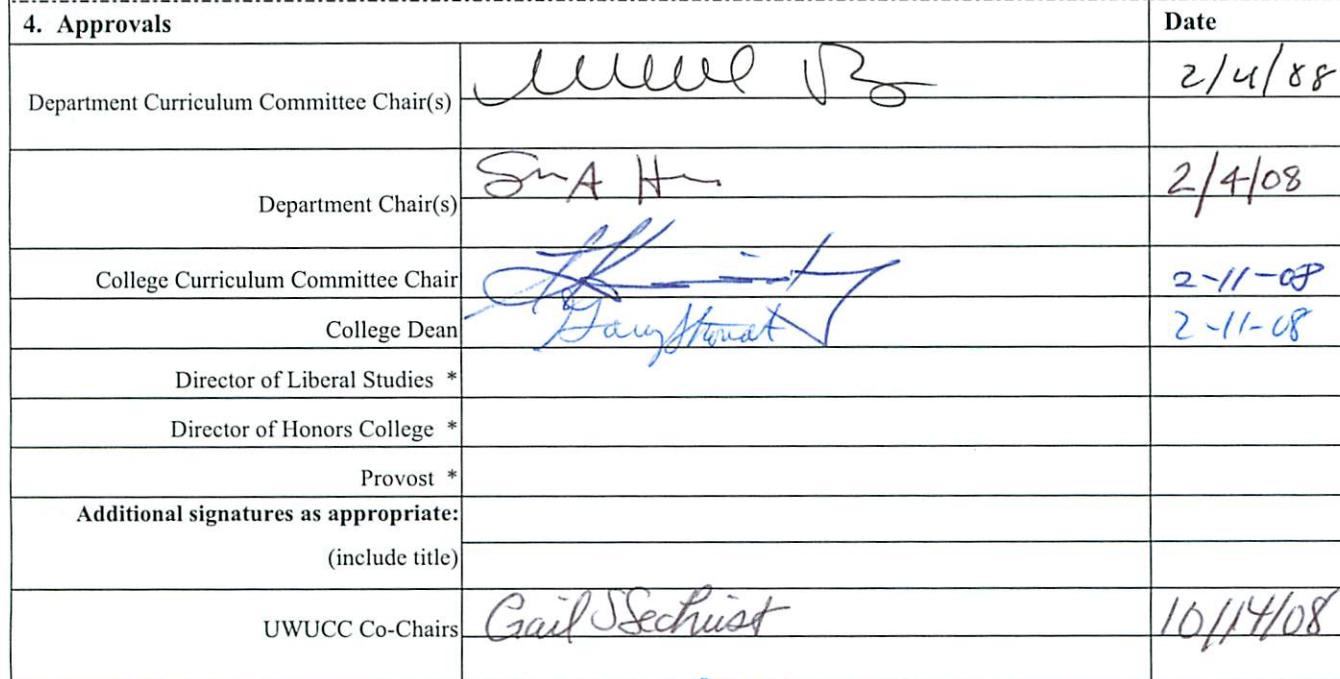 4. Approvals Date
Department Curriculum Committee Chair(s) 2/4/88
Department Chair(s) 2/4/08
College Curriculum Committee Chair 2-11-08
College Dean 2-11-08
Director of Liberal Studies *
Director of Honors College *
Provost *
Additional signatures as appropriate:
(include title)
UWUCC Co-Chairs Gail S Sechrist 10/14/08